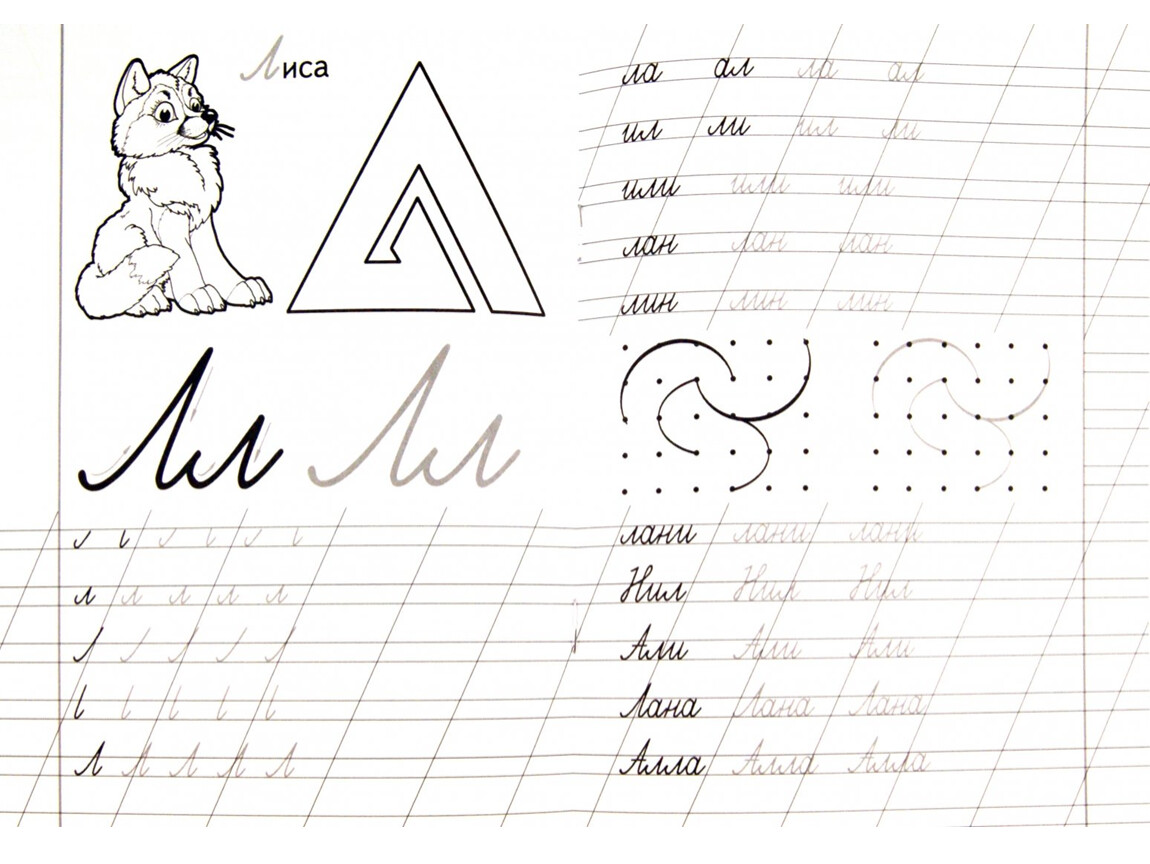 Лиса
Лл Лл
л л л л л
Л Л Л Л Л
ла ал ла ал
ил ли ил ли
или или или
лан лан лан
лин лин лин
лани лани лани
Нил Нил Нил
Али Али Али
Лана Лана Лана
Алла Алла Алла